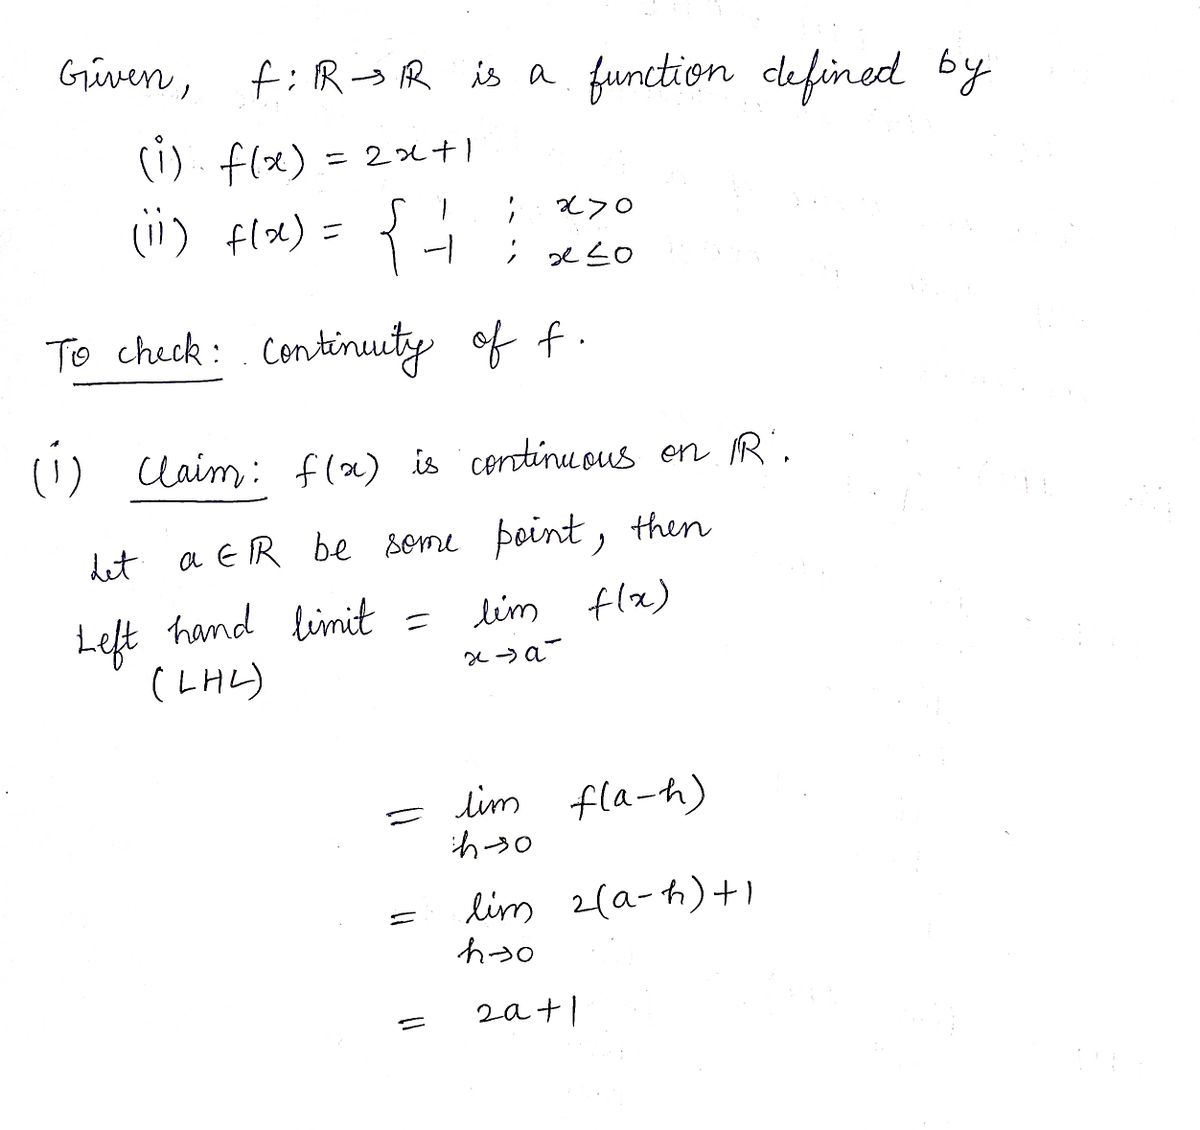 Given, f: ℝ → ℝ is a function defined by
(i) f(x) = 2x+1
(ii) f(x) = { 1 ; x>0
-1 ; x≤0
To check: Continuity of f.
(i) Claim: f(x) is continuous on ℝ.
Let a ∈ ℝ be some point, then
Left hand limit = lim f(x)
(LHL) x→a⁻
= lim f(a-h)
h→0
= lim 2(a-h)+1
h→0
= 2a+1